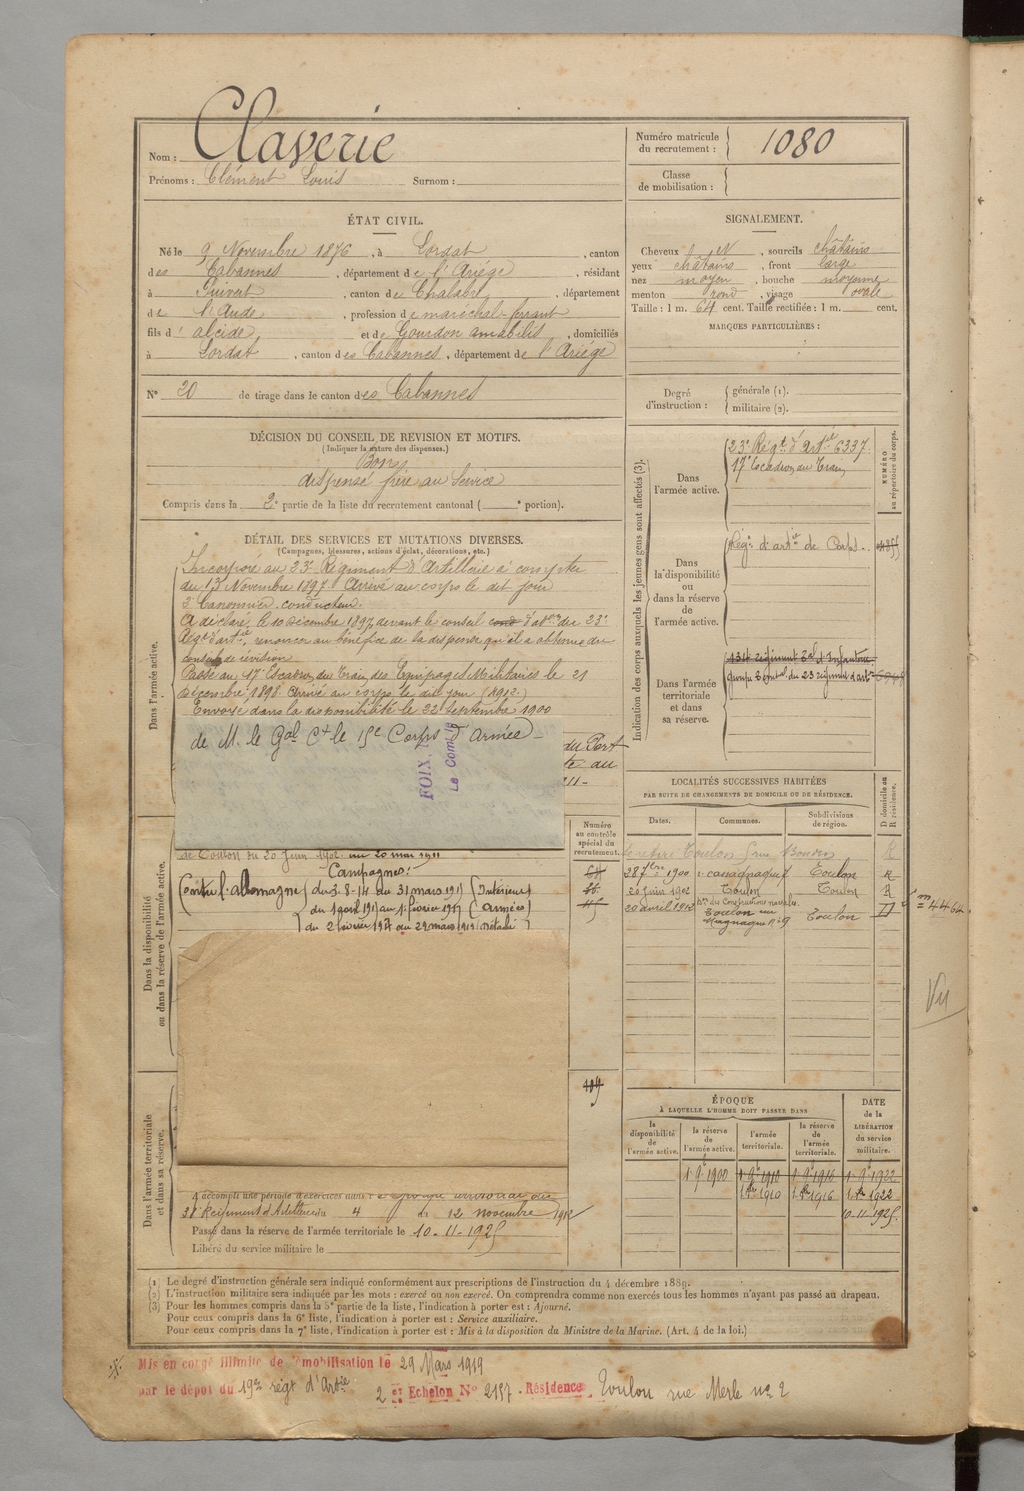 Nom : Claverie
Prénoms : Clément Louis Surnom :
Numéro matricule du recrutement : 1080
Classe de mobilisation :
ÉTAT CIVIL.
Né le 9 Novembre 1876, à Lordat, canton
des Cabannes, département de l'Ariège, résidant
à Puivert, canton de Chalabre, département
de l'Aude, profession de maréchal-ferrant
fils d'alcide et de Gourdon amabilis, domiciliés
à Lordat, canton des Cabannes, département de l'Ariège
N° 20 de tirage dans le canton des Cabannes
SIGNALEMENT.
Cheveux N, sourcils châtains
yeux châtains, front large
nez moyen, bouche moyenne
menton rond, visage ovale
Taille : 1 m. 64 cent. Taille rectifiée : 1 m. cent.
MARQUES PARTICULIÈRES :
Degré d'instruction : générale (1).
militaire (2).
DÉCISION DU CONSEIL DE REVISION ET MOTIFS.
(Indiquer la nature des dispenses.)
Bon
dispensé frère au Service
Compris dans la 2e partie de la liste du recrutement cantonal ( e portion).
DÉTAIL DES SERVICES ET MUTATIONS DIVERSES.
(Campagnes, blessures, actions d'éclat, décorations, etc.)
Dans l'armée active.
Incorporé au 23e Régiment d'Artillerie à compter
du 13 Novembre 1897. Arrivé au corps le dit jour
2e Canonnier conducteur.
A déclaré, le 10 Décembre 1897, devant le conseil d'adon du 23e
Régt d'artie, renoncer au bénéfice de la dispense qu'il a obtenue du
conseil de révision
Passé au 17e Escadron du Train des Equipages Militaires le 21
Décembre 1898. Arrivé au corps le dit jour
Envoyé dans la disponibilité le 22 Septembre 1900
de M. le Gal Ct le 15e Corps d'Armée
FOIX,
Le Com
du Port
te au
11-
Dans la disponibilité ou dans la réserve de l'armée active.
de Toulon du 20 Juin 1902 au 20 mai 1911
Campagnes:
Contre l'allemagne du 3-8-14 au 31 mars 1915 (Intérieur)
du 1 avril 1915 au 1er février 1917 (Armées)
du 2 février 1917 au 29 mars 1919 Détaché
Dans l'armée territoriale et dans sa réserve.
A accompli une période d'exercices dans
38e Régiment d'Artillerie du 4 au 12 novembre 1912
Passé dans la réserve de l'armée territoriale le 10-11-1925
Libéré du service militaire le
Indication des corps auxquels les jeunes gens sont affectés (3).
NUMÉRO au répertoire du corps.
Dans l'armée active.
23e Régt d'Artie 6337
17e Escadron du Train
Dans la disponibilité ou dans la réserve de l'armée active.
Régt d'artie de Corps.
Dans l'armée territoriale et dans sa réserve.
134e régiment Tal d'Infanterie
groupe territorial du 23 régiment d'artie
LOCALITÉS SUCCESSIVES HABITÉES
PAR SUITE DE CHANGEMENTS DE DOMICILE OU DE RÉSIDENCE.
Numéro au contrôle spécial du recrutement.
Dates. Communes. Subdivisions de région. D domicile ou R résidence.
Toulon R
28 1900 Toulon R
20 juin 1902 Toulon Toulon R
20 avril 1912 Toulon
= 4464
Vu
109
ÉPOQUE
A LAQUELLE L'HOMME DOIT PASSER DANS
la disponibilité de l'armée active. la réserve de l'armée active. l'armée territoriale. la réserve de l'armée territoriale.
DATE de la LIBÉRATION du service militaire.
1 9e 1900 1 9e 1910 1 9e 1916 1 9e 1922
1 8bre 1910 1 8bre 1916 1 8bre 1922
10-11-1925
(1) Le degré d'instruction générale sera indiqué conformément aux prescriptions de l'instruction du 4 décembre 1889.
(2) L'instruction militaire sera indiquée par les mots : exercé ou non exercé. On comprendra comme non exercés tous les hommes n'ayant pas passé au drapeau.
(3) Pour les hommes compris dans la 5e partie de la liste, l'indication à porter est : Ajourné.
Pour ceux compris dans la 6e liste, l'indication à porter est : Service auxiliaire.
Pour ceux compris dans la 7e liste, l'indication à porter est : Mis à la disposition du Ministre de la Marine. (Art. 4 de la loi.)
Mis en congé illimité de démobilisation le 29 Mars 1919
par le dépôt du 19e régt d'Artie 2 er Echelon N° 2197 - Résidence Toulon rue Merle no 2